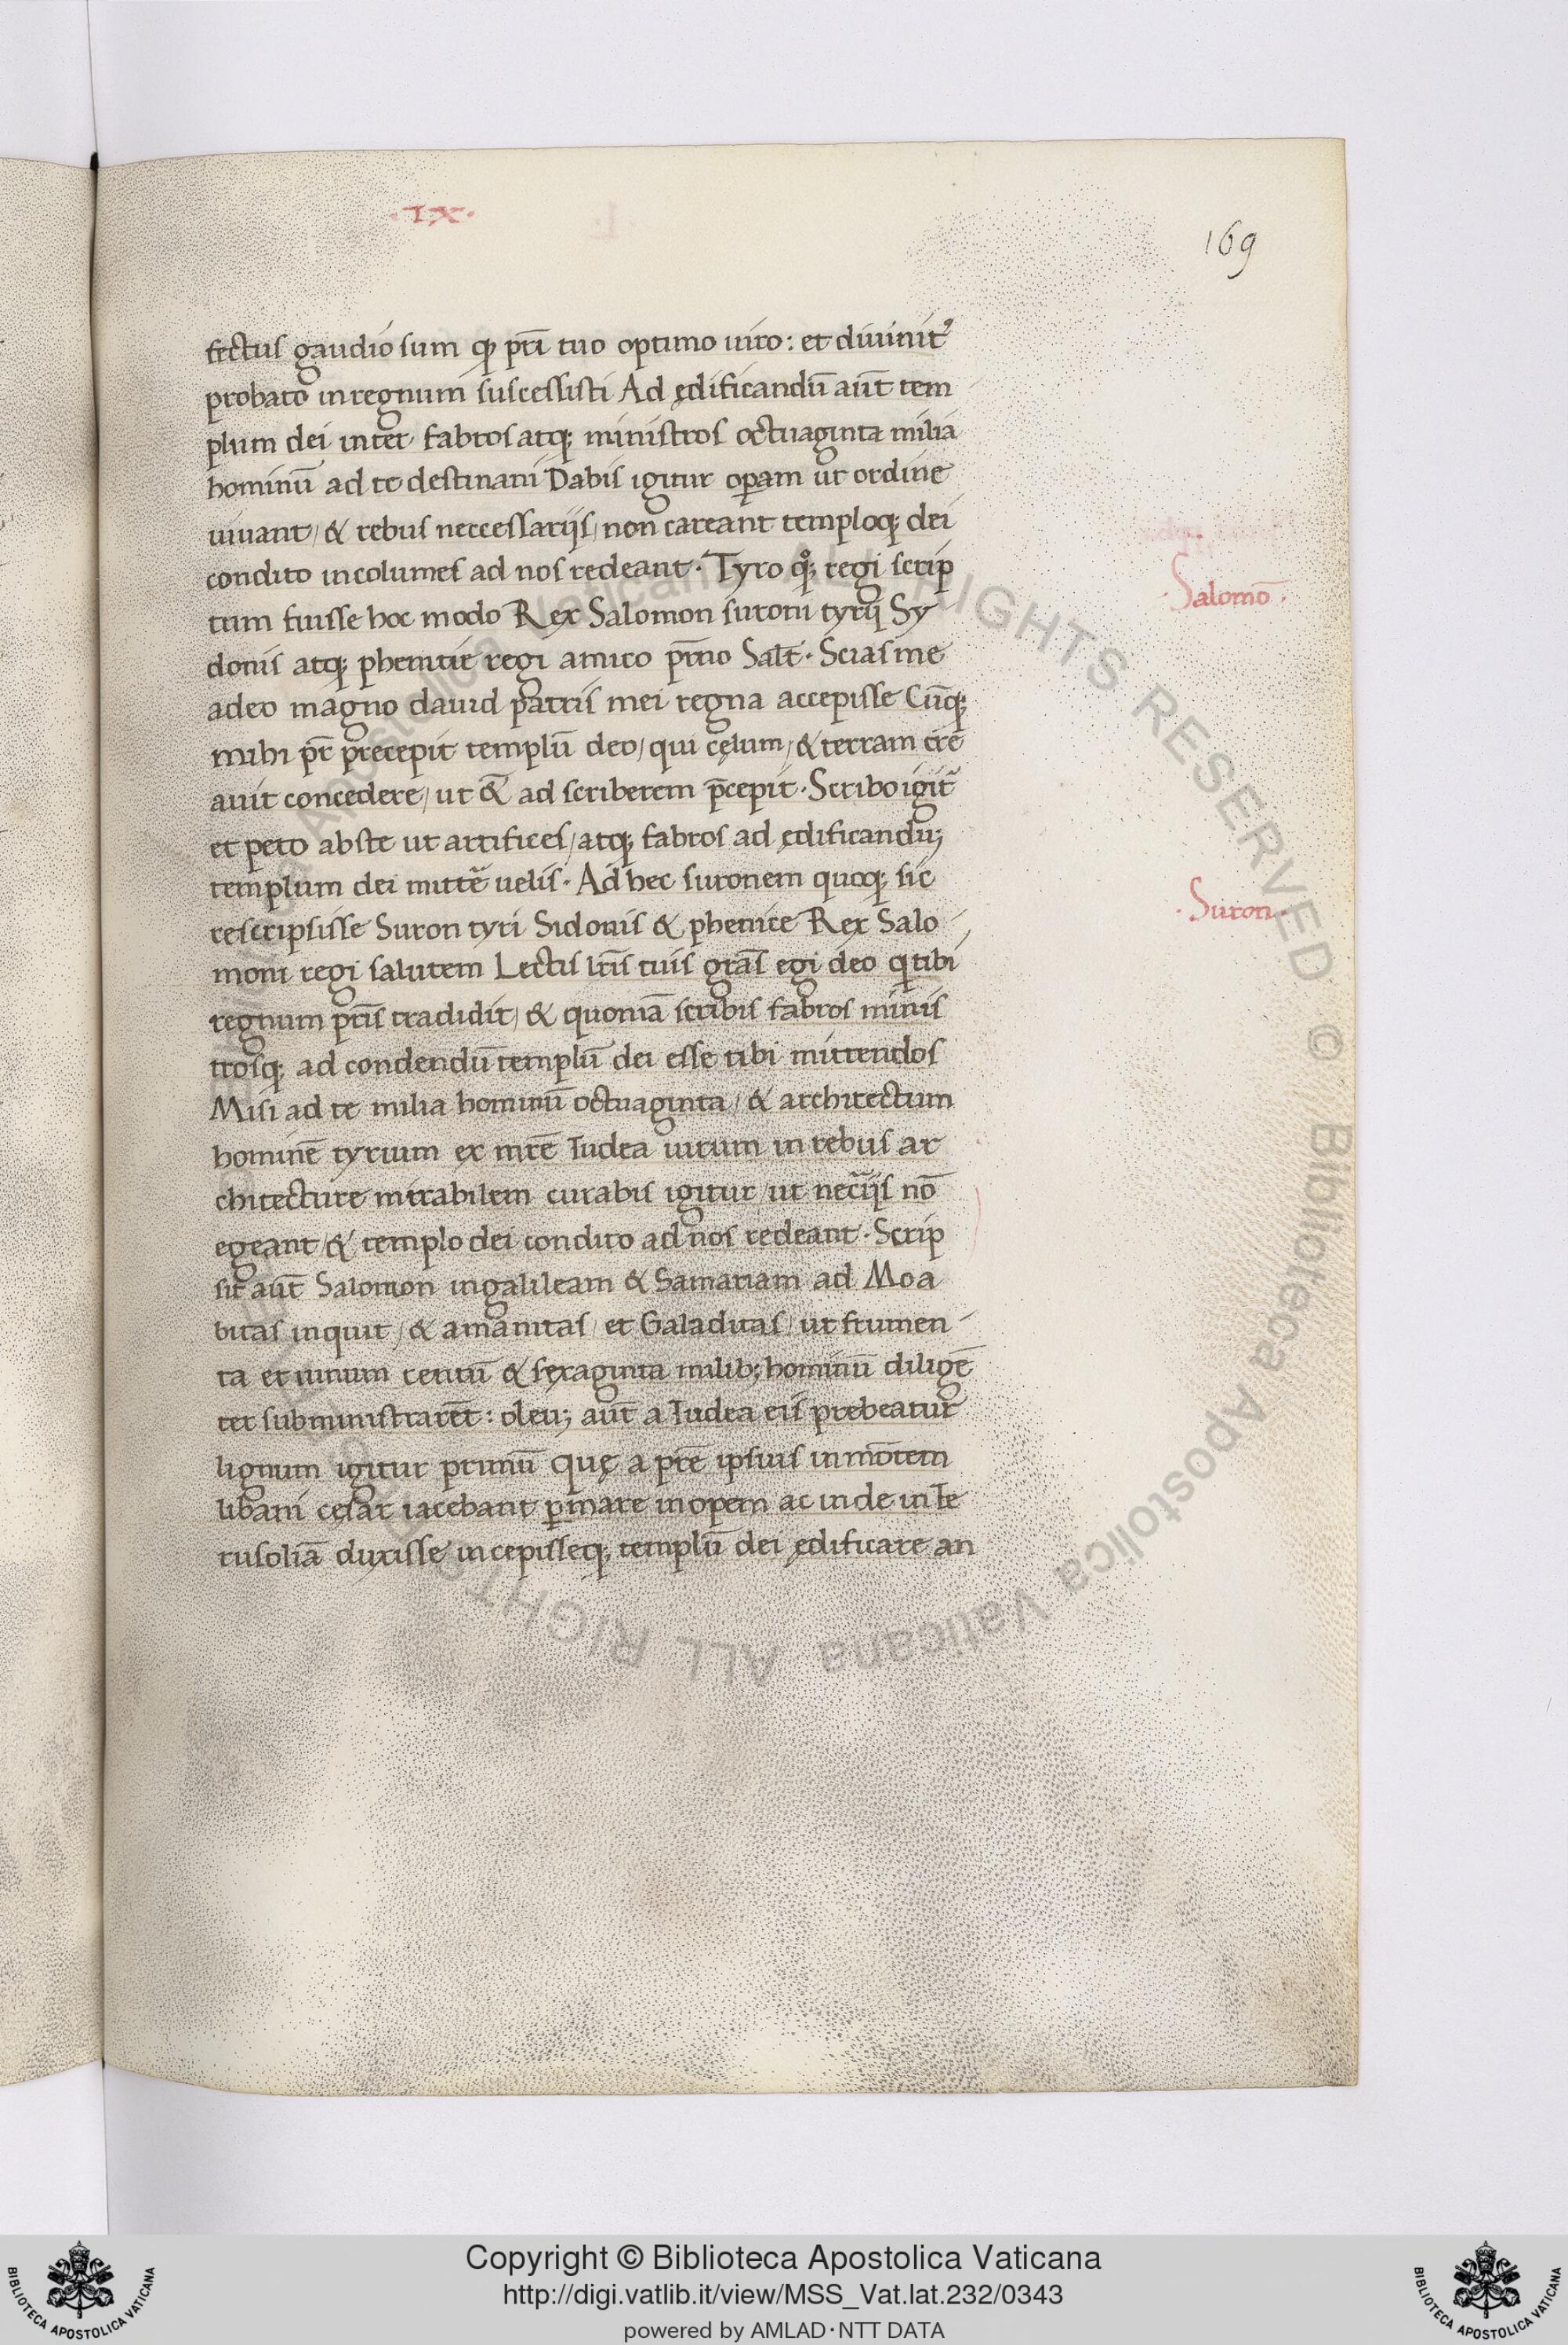 ·IX·
169
fectus gaudio sum qꝫ pr̃i tuo optimo uiro: et diuinitꝰ
probato in regnum suscessisti Ad ędificandũ aut̃ tem
plum dei inter fabros atqꝫ ministros octuaginta milia
hominũ ad te destinani Dabis igitur oꝑam ut ordine
uiuant/ & rebus neccessarijs/ non careant temploqꝫ dei
condito incolumes ad nos redeant· Tyro qͦqꝫ regi scrip
tum fuisse hoc modo Rex Salomon suroni tyrij Sy
donis atqꝫ phenitie regi amico pr̃no Salt̃· Scias me
a deo magno dauid patris mei regna accepisse Cũqꝫ
mihi pr̃ precepit templũ deo/ qui cęlum/ & terram cre
auit concedere/ ut &̃ ad scriberem p̃cepit· Scribo igit᷑
et peto abs te ut artifices/ atqꝫ fabros ad ędificanduꝫ
templum dei mitte᷑ uelis· Ad hec suronem quoqꝫ sic
rescripsisse Suron tyri Sidonis & phenice Rex Salo/
moni regi salutem Lectis lr̃is tuis gra᷑s egi deo q tibi
regnum pr̃is tradidit/ & quoniã scribis fabros minis
trosqꝫ ad condendũ templũ dei esse tibi mittendos
Misi ad te milia hominũ octuaginta/ & architectum
hominẽ tyrium ex mr̃e Iudea uirum in rebus ar
chitecture mirabilem curabis igitur/ ut nec᷑rijs nõ
egeant/ & templo dei condito ad nos redeant· Scrip
sit aut̃ Salomon in galileam & Samariam ad Moa
bitas inquit/ & amanitas/ et Galaditas/ ut frumen-
ta et uinum centũ & sexaginta milibꝫ hominũ diligẽ
ter subministraret̃: oleuꝫ aut̃ a Iudea eis prebeatur
lignum igitur primũ quę a pr̃e ipsius in mõtem
libani cęsar iacebant ꝑ mare in opem ac inde in Ie
rusoliã duxisse incepisseqꝫ templũ dei ędificare an
·Salomõ·
·Suron·
Copyright © Biblioteca Apostolica Vaticana
http://digi.vatlib.it/view/MSS_Vat.lat.232/0343
powered by AMLAD·NTT DATA
BIBLIOTECA APOSTOLICA VATICANA
BIBLIOTECA APOSTOLICA VATICANA